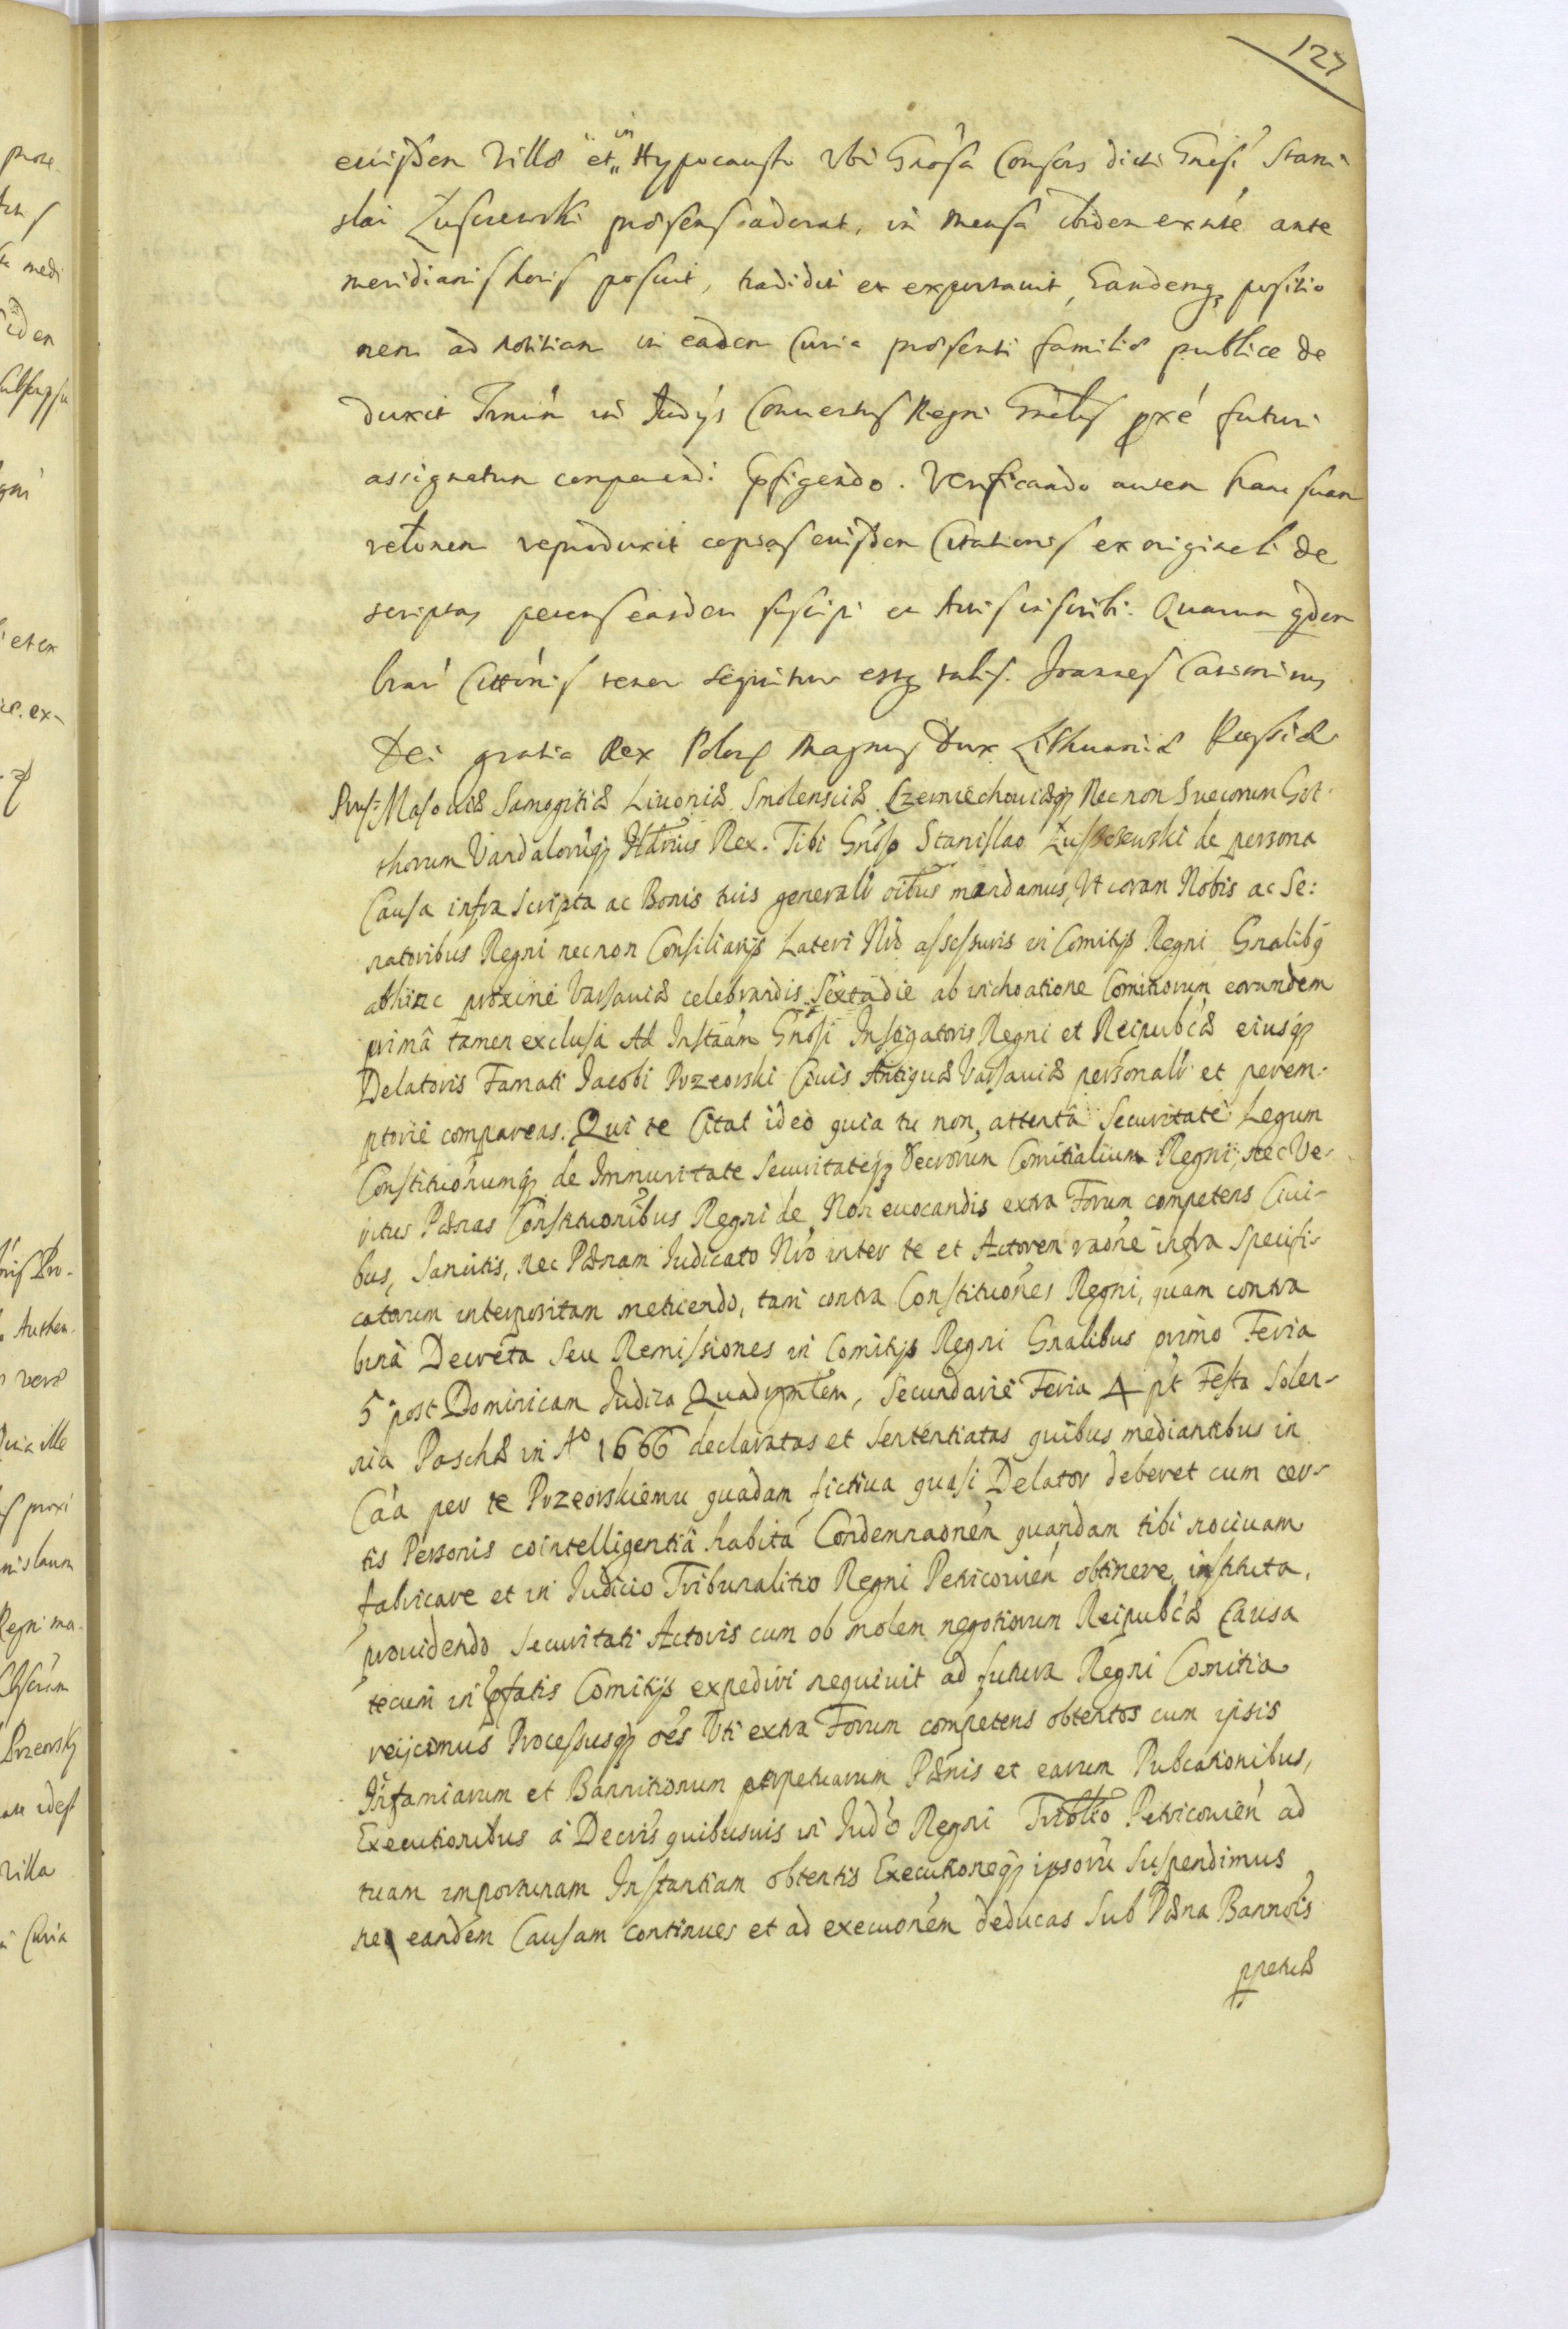 127
eiusdem Villæ et in Hypocausto Vbi Gnosa Consors dicti Gnosi Stani
slai Zusczewski præsens aderat, in mensa ibidem exnte ante
meridianis horis posuit, tradidit et exportauit, Eandemq3 positio
nem ad notitiam in eadem Curia præsenti familiæ publice de
duxit Trmin in Judijs Conuentus Regni Gnalis pxé futuri
assignatum comparendi Pfigendo. Verificando autem hanc suam
relonem reproduxit copias eiusdem Citationis ex originali de
scriptas petens easdem suscipi et Actis inscribi. Quarum qdem
lrarú Cittónis tenor sequitur estq3 talis. Joannes Casimirus
Dei gratia Rex Polon Magnus Dux Lithuaniæ Russiæ
Prus: Masouiæ Samogitiæ Liuoniæ Smolensciæ Czerniechouiæq3 Necnon Suecorum Got-
thorum Vandalorúq3 Hdrius Rex. Tibi Gnoso Stanislao Zusczewski de persona
Causa infra scripta ac Bonis tuis generalr oibus mandamus, Vt coram Nobis ac Se:
natoribus Regni necnon Consiliarijs Lateri Nro assessuris in Comitijs Regni Gnalibq
abhinc proxime Varsauiæ celebrandis Sexta die ab inchoatione Comitiorum eorundem
primâ tamen exclusa Ad Instaám Gnosi Instigatoris Regni et Reipubcæ eiusq3
Delatoris Famati Jacobi Przeorski Ciuis Antiquæ Varsauiæ personalr et perem-
ptorie compareas. Qui te Citat ideo quia tu non, attentâ Securitate Legum
Constituónumq3 de Immunitate Securitateq3 Decrorum Comitialium Regni, nec Ve-
ritus Pænas Constituonibus Regni de Non euocandis extra Forum competens Ciui-
bus, Sancitis, nec Pænam Judicato Nro inter te et Actorem raóne infra Specifi-
catorum interpositam metuendo, tam contra Constituónes Regni, quam contra
bina Decreta Seu Remissiones in Comitijs Regni Gnalibus primo Feria
5 post Dominicam Judica Quadrgmlem, Secundarie Feria 4 pt Festa Solen-
nia Paschæ in Aº 1666 declaratas et Sententiatas quibus mediantibus in
Caá per te Przeorskiemu quadam fictiua quasi Delator deberet cum cer-
tis Personis cointelligentiâ habita Condemnaonén quandam tibi nociuam
fabricare et in Judicio Tribunalitio Regni Petricouién obtinere, instituta,
prouidendo Securitati Actoris cum ob molem negotiorum Reipubcæ Causa
tecum in Pfatis Comitijs expediri nequiuit ad futura Regni Comitia
reijcimus Processusq3 oés Vti extra Forum competens obtentos cum ipsis
Infamiarum et Bannitionum perpetuarum Pænis et earum Pubcationibus,
Executionibus à Decris quibusuis in Judo Regni Triblio Petricouién ad
tuam importunam Instantiam obtentis Executioneq3 ipsorú Suspendimus
nec eandem Causam continues et ad execuonem deducas Sub Pæna Bannois
ppetuæ